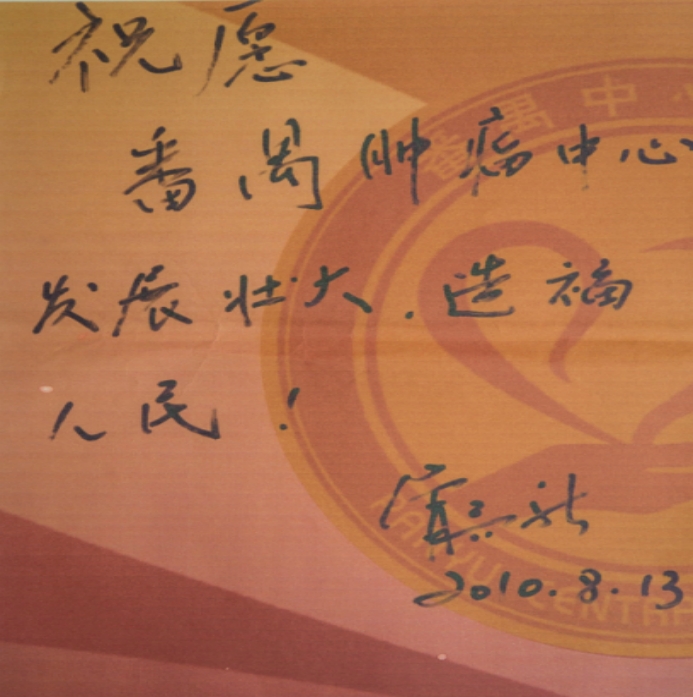 祝愿
番禺肿瘤中心
发展壮大.造福
人民!
2010.8.13
番禺中心
PANYU CENTRA